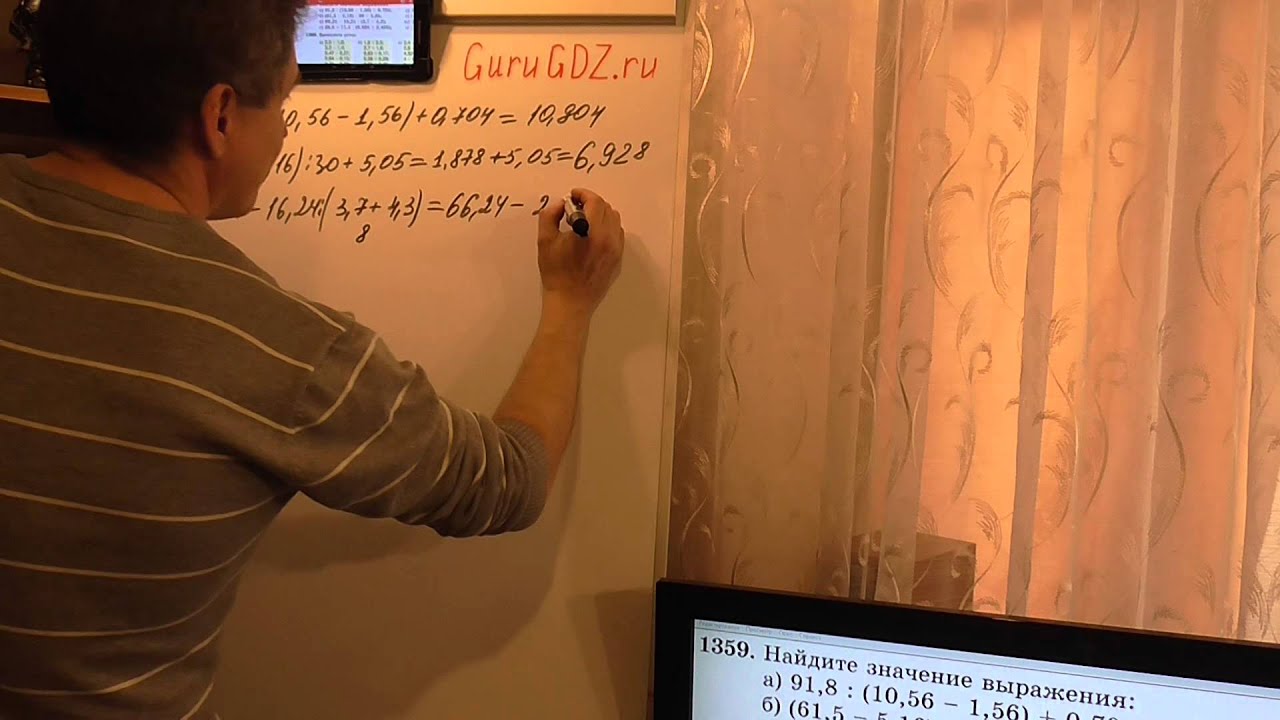 GuruGDZ.ru
10,56 - 1,56) + 0,704 = 10,904
16) : 30 + 5,05 = 1,878 + 5,05 = 6,928
- 16,24 : ( 3,7 + 4,3) = 66,24 - 2
8
1359. Найдите значение выражения:
а) 91,8 : (10,56 − 1,56) + 0,70
б) (61,5 − 5,16)